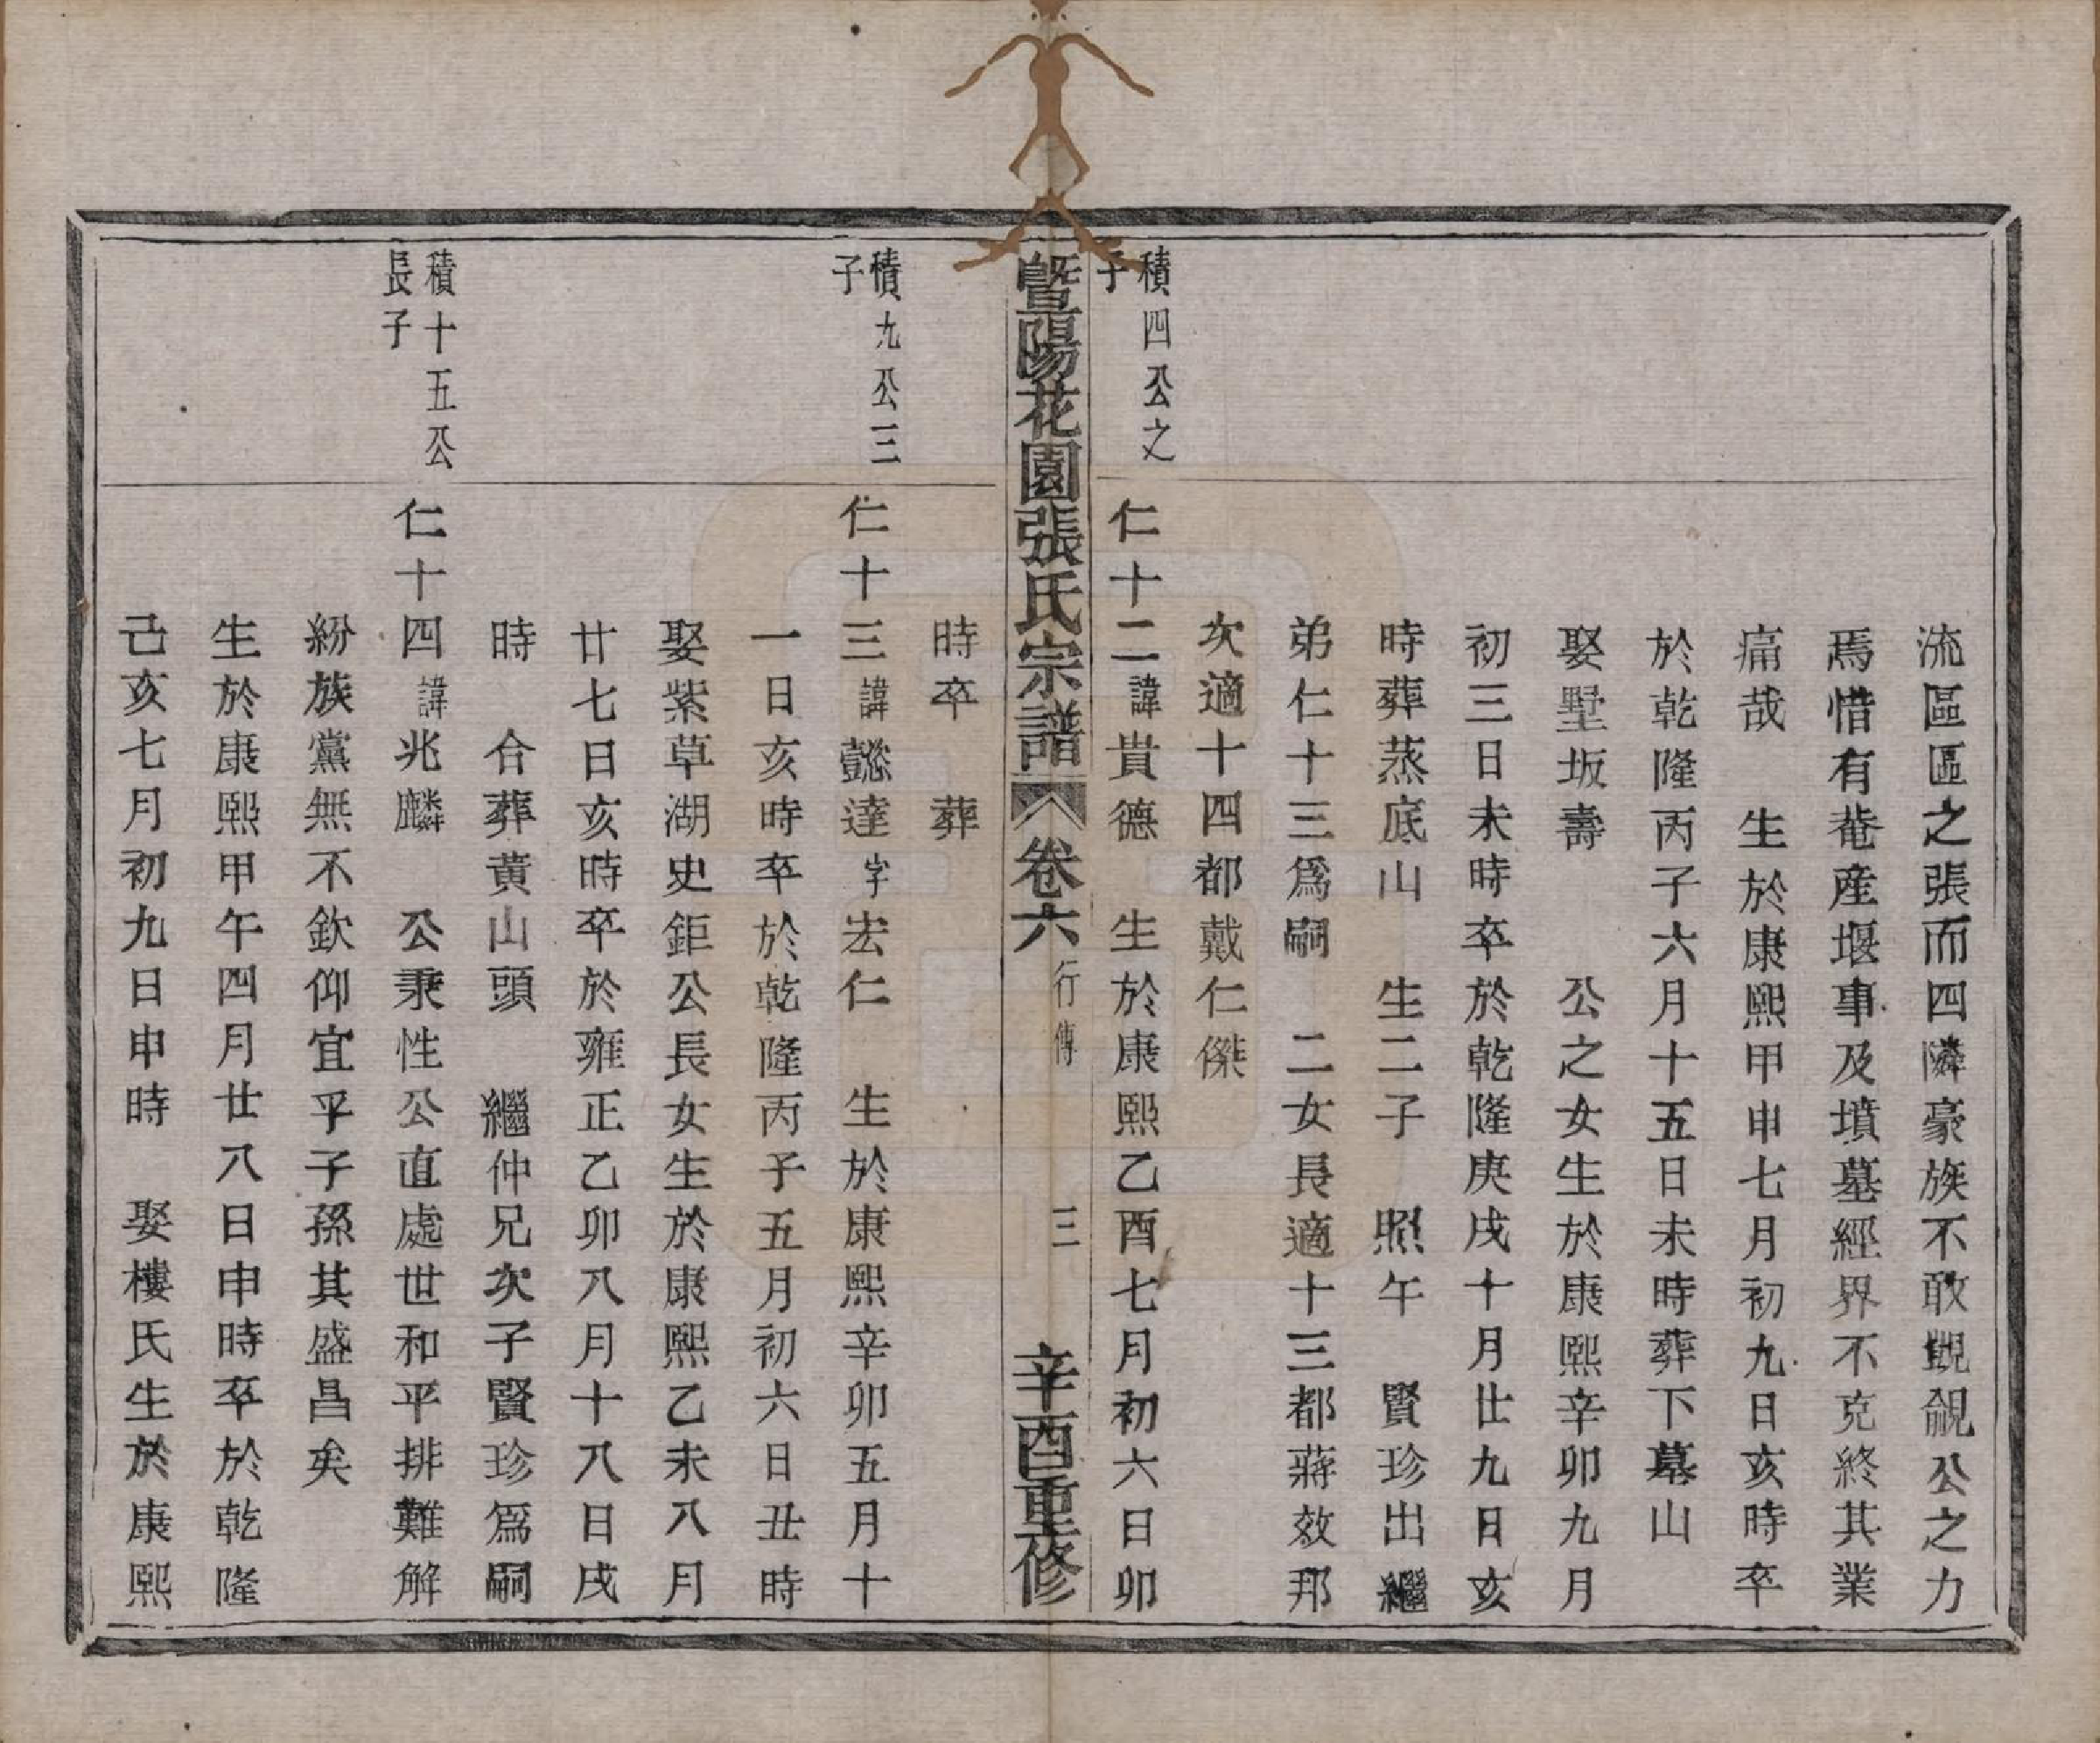 流區區之張而四隣豪族不敢覬覦公之力
焉惜有菴産堰事及墳墓經界不克終其業
痛哉　生於康熙甲申七月初九日亥時卒
於乾隆丙子六月十五日未時葬下墓山
娶墅坂壽　公之女生於康熙辛卯九月
初三日未時卒於乾隆庚戌十月廿九日亥
時葬蒸底山　生二子　照午　賢珍出繼
弟仁十三爲嗣　二女長適十三都蔣效邦
次適十四都戴仁傑
積四公之
子
仁十二諱貴德　生於康熙乙酉七月初六日卯
暨陽花園張氏宗譜　卷六　行傳　三　辛酉重修
時卒　葬
積九公三
子
仁十三諱懿達字宏仁　生於康熙辛卯五月十
一日亥時卒於乾隆丙子五月初六日丑時
娶紫草湖史鉅公長女生於康熙乙未八月
廿七日亥時卒於雍正乙卯八月十八日戌
時　合葬黄山頭　繼仲兄次子賢珍爲嗣
積十五公
長子
仁十四諱兆麟　公秉性公直處世和平排難解
紛族黨無不欽仰宜乎子孫其盛昌矣
生於康熙甲午四月廿八日申時卒於乾隆
己亥七月初九日申時　娶樓氏生於康熙